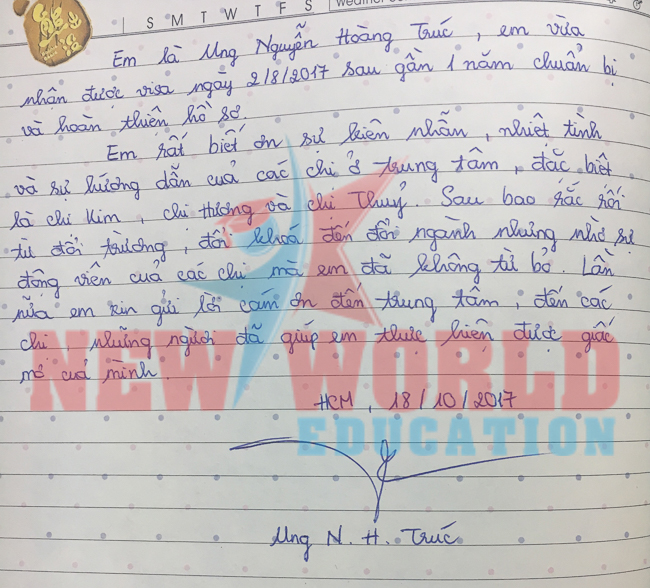 S M T W T F S
Em là Ung Nguyễn Hoàng Trúc, em vừa
nhận được visa ngày 2/8/2017 sau gần 1 năm chuẩn bị
và hoàn thiện hồ sơ.
Em rất biết ơn sự kiên nhẫn, nhiệt tình
và sự hướng dẫn của các chị ở trung tâm, đặc biệt
là chị Kim, chị Hương và chị Thuỷ. Sau bao rắc rối
từ đổi trường, đổi khoá đến đổi ngành nhưng nhờ sự
động viên của các chị mà em đã không từ bỏ. Lần
nữa em xin gửi lời cám ơn đến trung tâm, đến các
chị những người đã giúp em thực hiện được giấc
mơ của mình.
NEW WORLD
HCM, 18/10/2017
EDUCATION
Ung N. H. Trúc